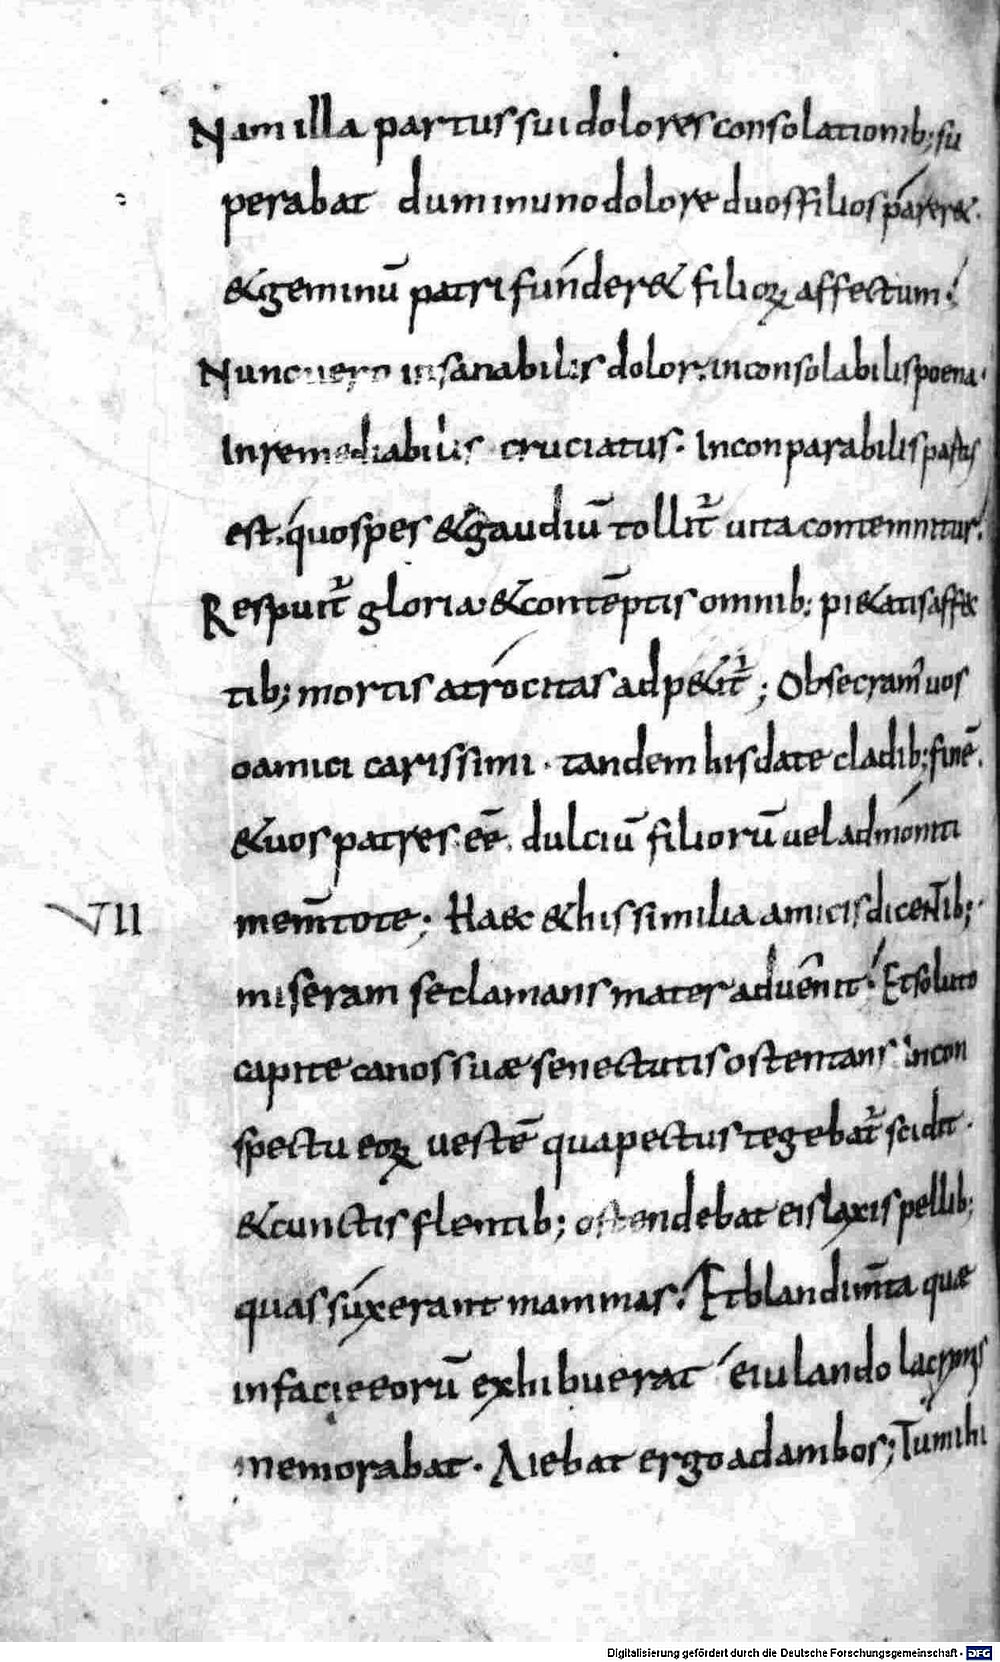 Nam illa partus sui dolores consolationib; su
perabat dum in uno dolore duos filios parer&.
& geminū patri funder& filioꝝ affectum.
Nunc uero insanabilis dolor. inconsolabilis poena.
Inremediabilis cruciatus. Inconparabilis
est. quo spes & gaudiū tollit᷑ uita contemnitur.
Respuit᷑ gloria & contēptis omnib; pi&atis affec
tib; mortis atrocitas adp&it᷑; Obsecram᷒ uos
o amici carissimi. tandem his date cladib; finē.
& uos patres eē dulciū filiorū uel admoniti
mem̄tote; Haec & his similia amicis dicentib;
VII
miseram se clamans mater aduēnit. Et soluto
capite canos suæ senectutis ostentans in con
spectu eoꝝ uestē qua pectus tegebat᷑ scidit.
& cunctis flentib; ostendebat eis laxis pellib;
quas suxerant mammas. Et blandim̄ta quæ
in facie eorū exhibuerat eiulando lacrymis
memorabat. Aiebat ergo ad ambos; Tu mihi
Digitalisierung gefördert durch die Deutsche Forschungsgemeinschaft - DFG